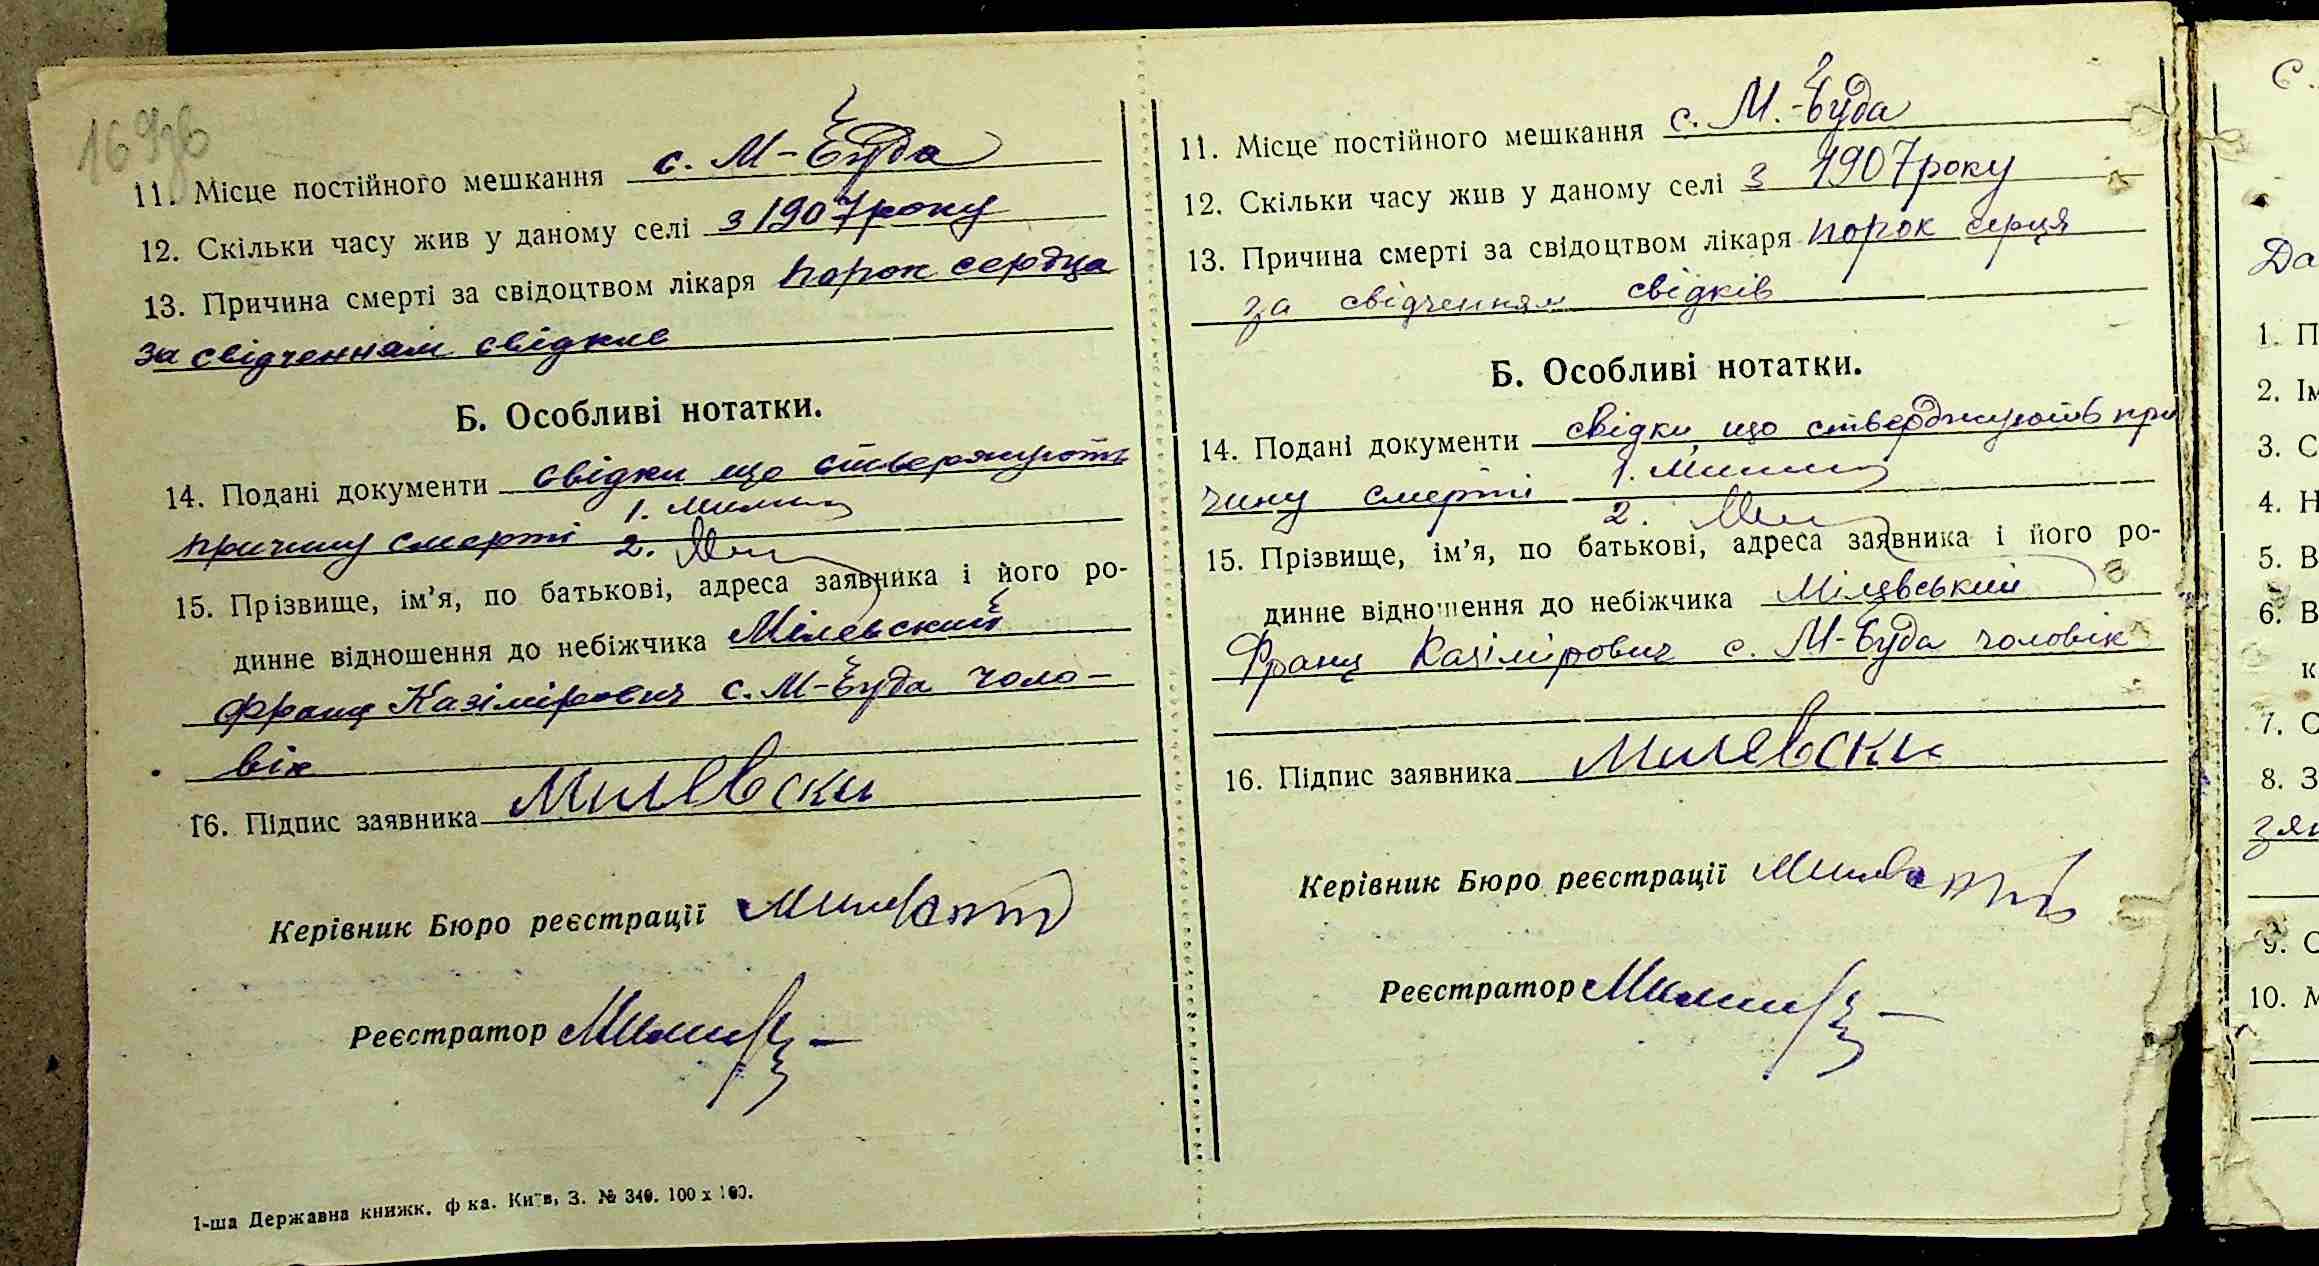 169зв
11. Місце постійного мешкання с. М-Буда
12. Скільки часу жив у даному селі з 1907 року
13. Причина смерті за свідоцтвом лікаря порок сердца
за свідченням свідків
Б. Особливі нотатки.
14. Подані документи свідки що стверджують
причину смерті 1.
2.
15. Прізвище, ім'я, по батькові, адреса заявника і його ро-
динне відношення до небіжчика Мілевский
Франц Казімірович с. М-Буда чоло-
вік
16. Підпис заявника Милевски
Керівник Бюро реєстрації
Реєстратор
1-ша Державна книжк. ф ка. Київ, З. № 340. 100 х 100.
11. Місце постійного мешкання с. М.-Буда
12. Скільки часу жив у даному селі з 1907 року
13. Причина смерті за свідоцтвом лікаря порок серця
за свідченням свідків
Б. Особливі нотатки.
14. Подані документи свідки що стверджують при
чину смерті 1.
2.
15. Прізвище, ім'я, по батькові, адреса заявника і його ро-
динне відношення до небіжчика Мілєвський
Франц Казімірович с. М-Буда чоловік
16. Підпис заявника Милевски
Керівник Бюро реєстрації
Реєстратор
С.
Да
1. П
2. Ім
3. С
4. Н
5. В
6. В
к
7. С
8. З
зян
9. С
10. М